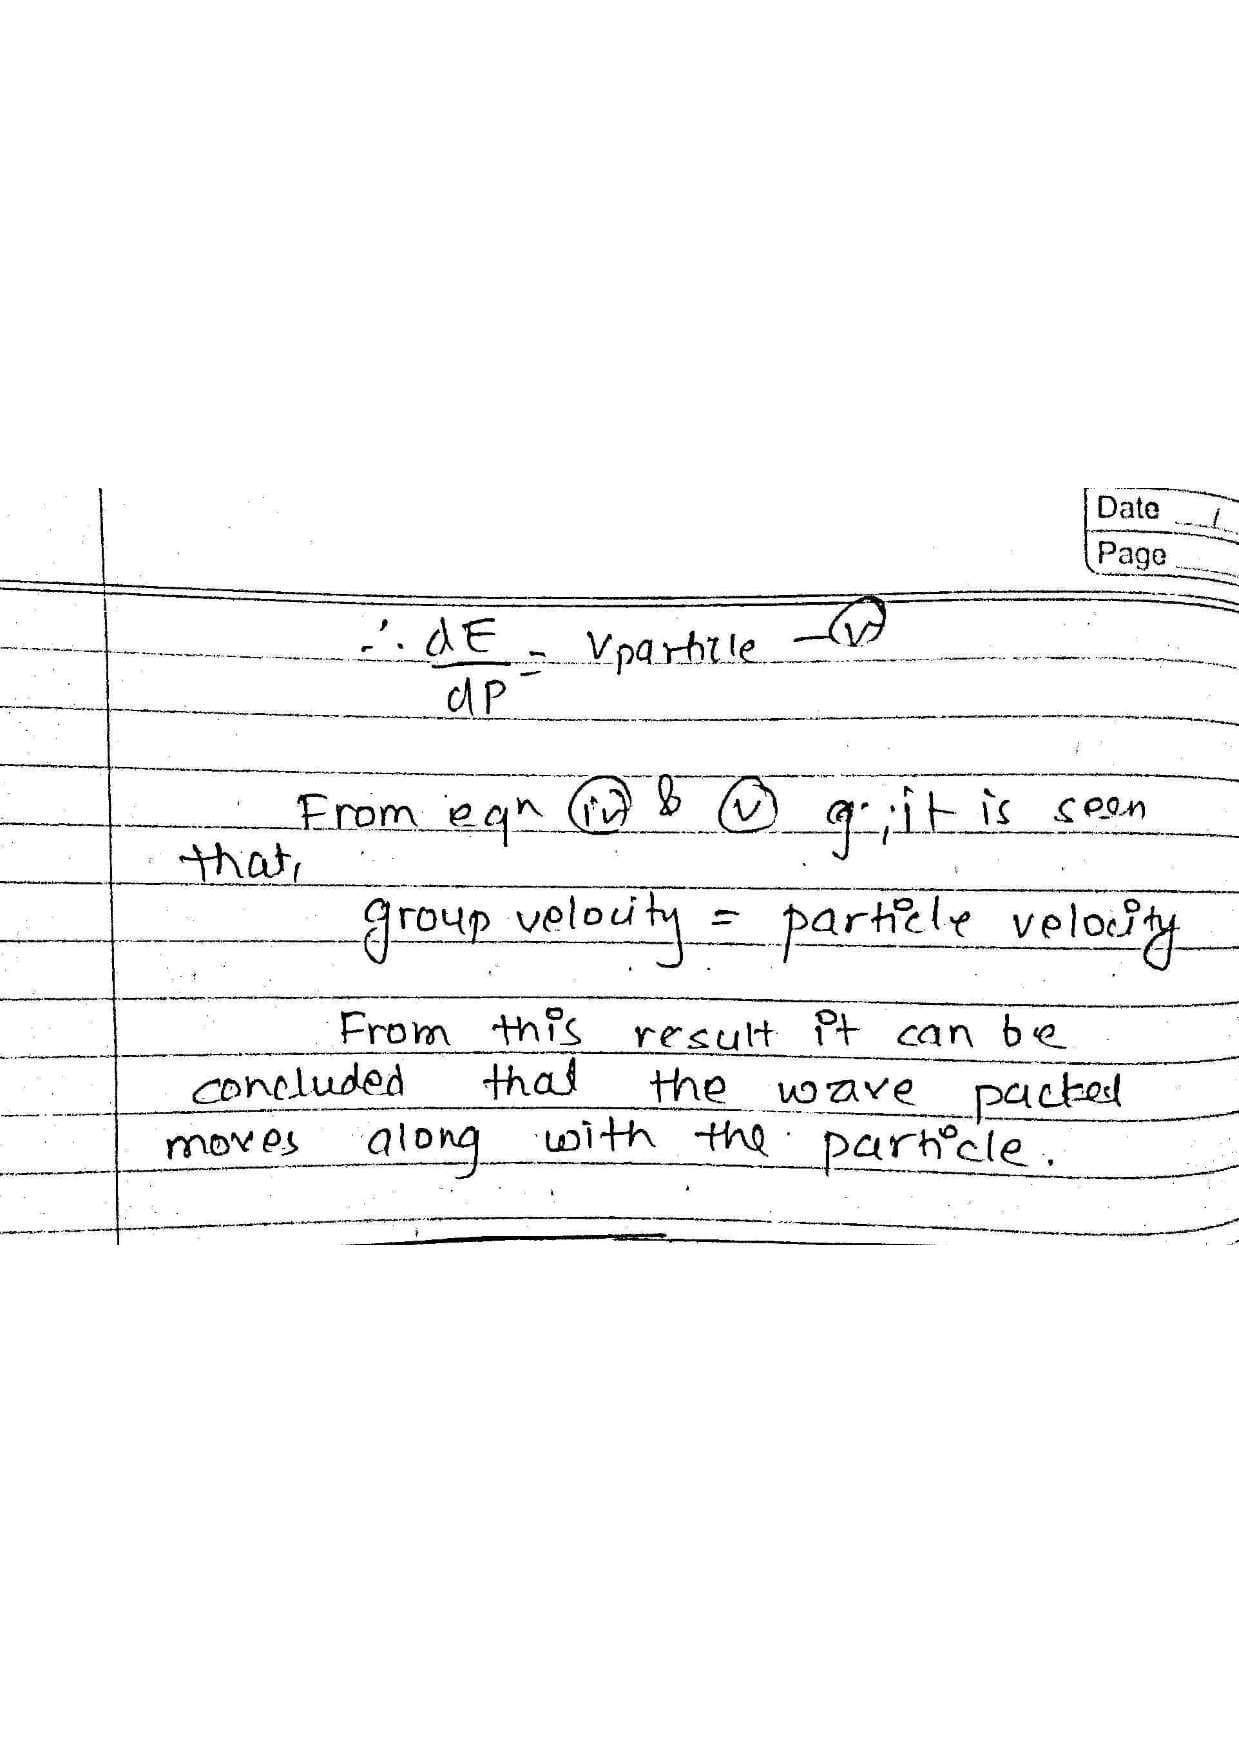 Date /
Page
∴ dE/dP = Vparticle — (v)
From eqn (iv) & (v) ;it is seen
that,
group velocity = particle velocity
From this result it can be
concluded that the wave packed
moves along with the particle.